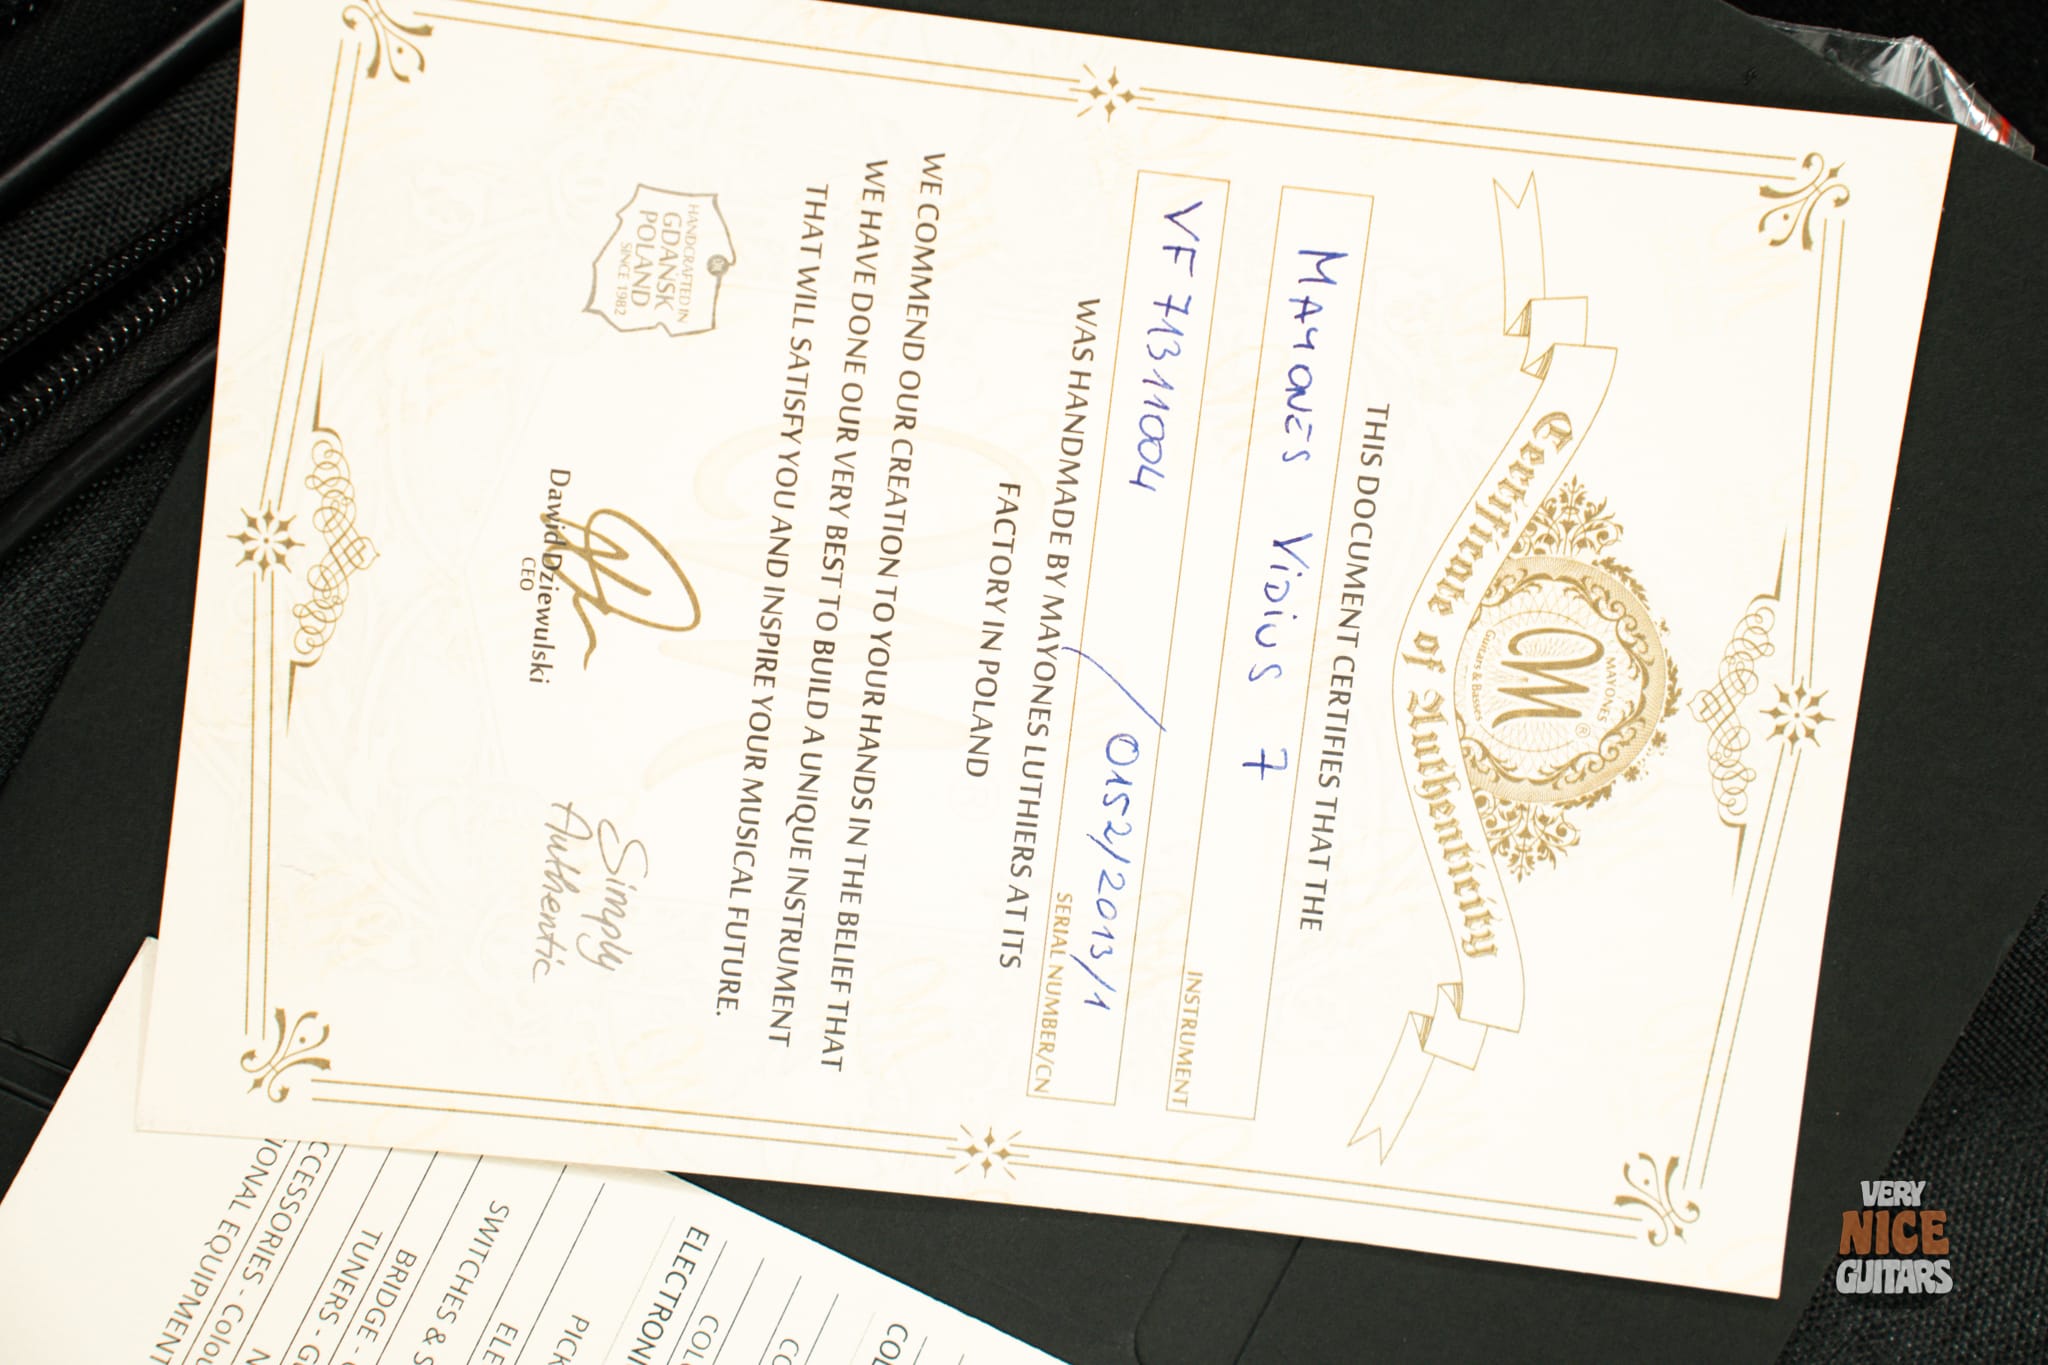 MAYONES
M®
Guitars & Basses
Certificate of Authenticity
THIS DOCUMENT CERTIFIES THAT THE
MAYONES VIDIUS 7
INSTRUMENT
VF 71311004 / 0152/2013/1
SERIAL NUMBER/CN
WAS HANDMADE BY MAYONES LUTHIERS AT ITS
FACTORY IN POLAND
WE COMMEND OUR CREATION TO YOUR HANDS IN THE BELIEF THAT
WE HAVE DONE OUR VERY BEST TO BUILD A UNIQUE INSTRUMENT
THAT WILL SATISFY YOU AND INSPIRE YOUR MUSICAL FUTURE.
HANDCRAFTED IN
GDAŃSK
POLAND
SINCE 1982
Dawid Dziewulski
CEO
Simply
Authentic
COL
CO
COL
ELECTRON
PICK
ELE
SWITCHES & S
BRIDGE -
TUNERS - G
N
CCESSORIES - Colou
IONAL EQUIPMENT
VERY
NICE
GUITARS